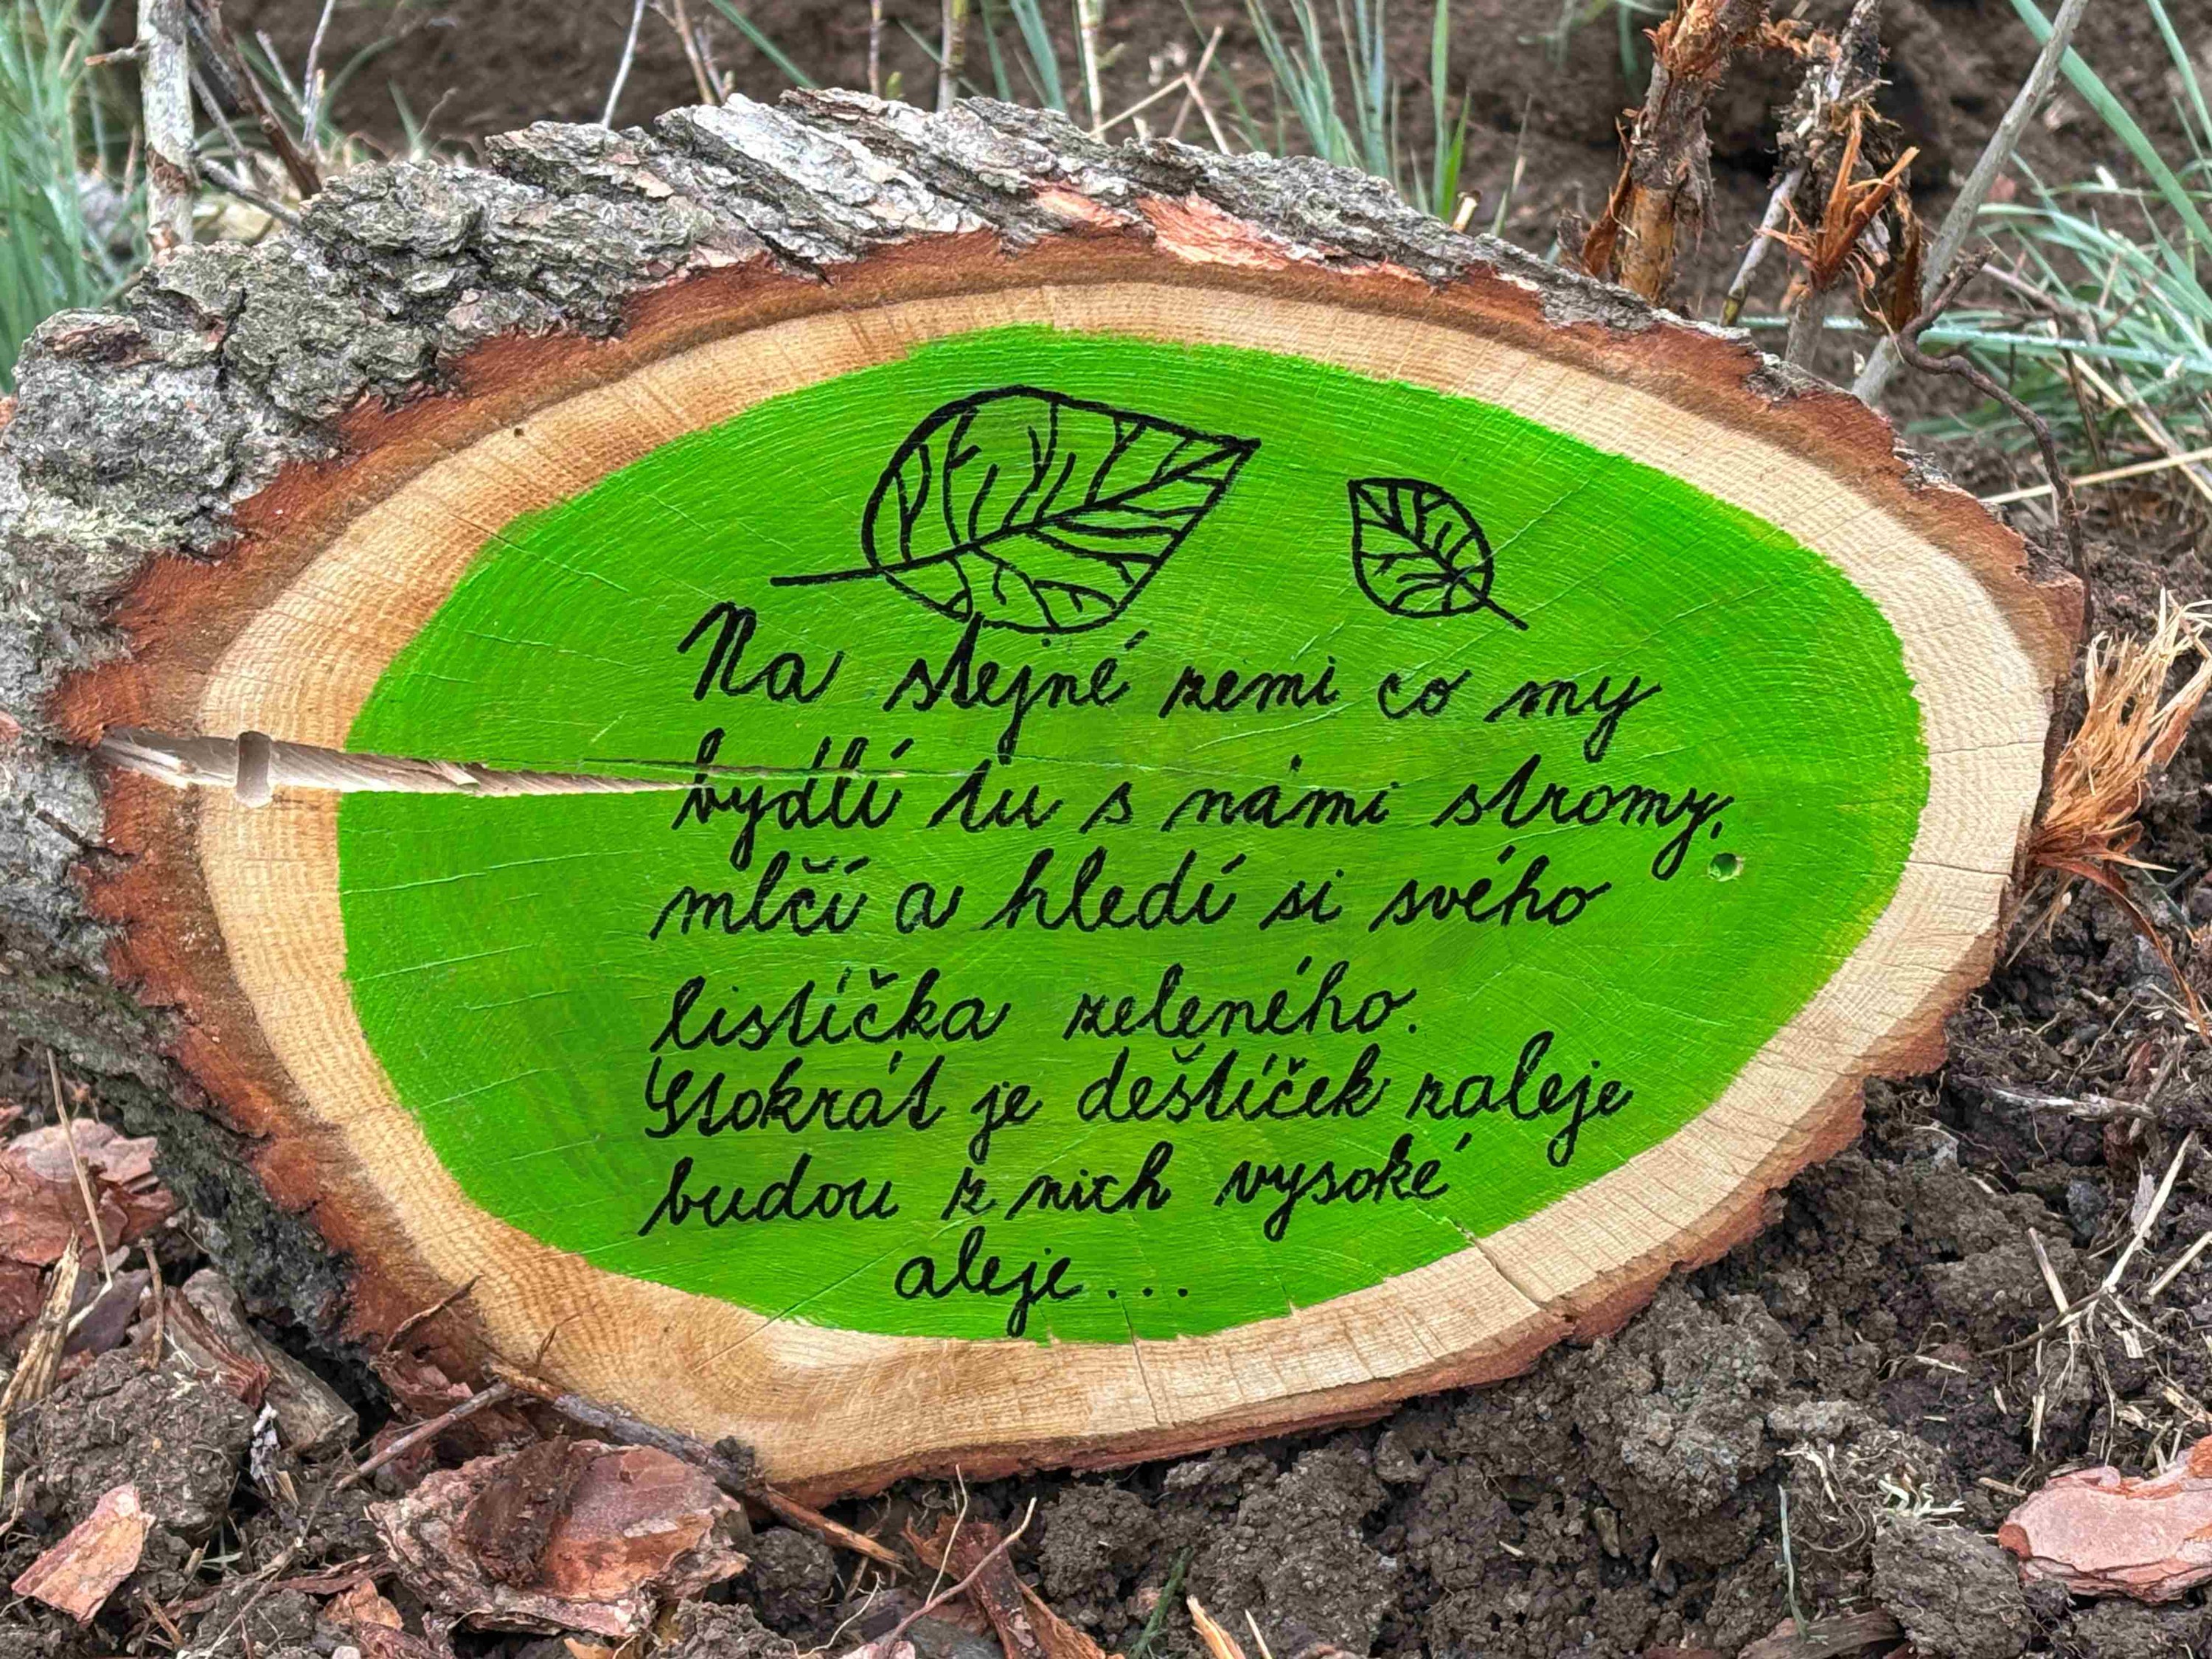 Na stejné zemi co my
bydlí tu s námi stromy,
mlčí a hledí si svého
lístíčka zeleného.
Stokrát je deštíček zaleje
budou z nich vysoké
aleje...